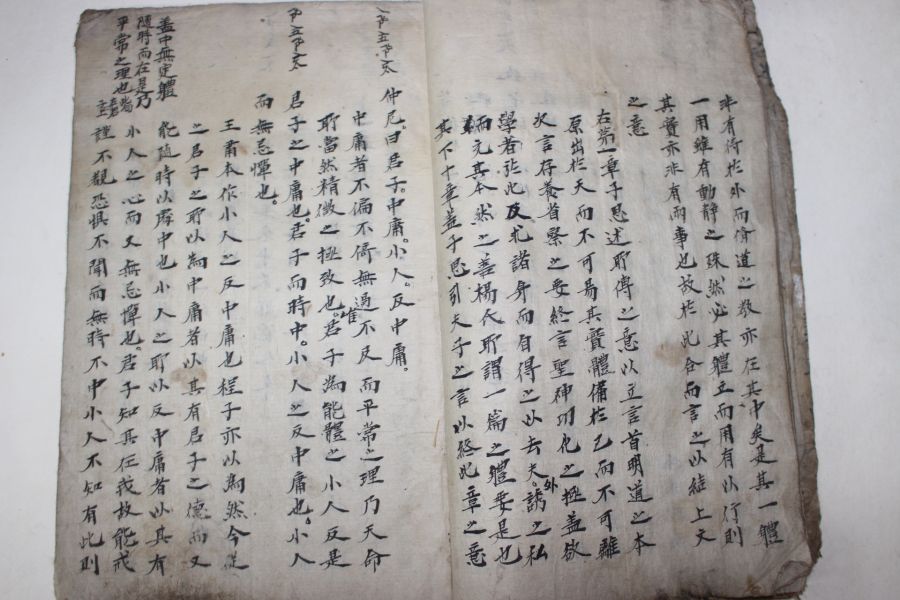 非有待於外而脩道之敎亦在其中矣是其一體
一用雖有動静之殊然必其體立而用有以行則
其實亦非有兩事也故於此合而言之以結上文
之意
右第一章子思述所傳之意以立言首明道之本
原出於天而不可易其實體備於己而不可離
次言存養省察之要終言聖神功化之極盖欲
學者於此反求諸身而自得之以去夫外誘之私
而充其本然之善楊氏所謂一篇之體要是也
其下十章盖子思引夫子之言以終此章之意
仲尼。曰君子。中庸。小人。反中庸。
中庸者不偏不倚無過不及而平常之理乃天命
所當然精微之極致也。唯君子為能體之小人反是
君子之中庸也。君子而時中。小人之反中庸也。小人
而無忌憚也。
王肅本作小人之反中庸也程子亦以為然今從
之君子之所以為中庸者以其有君子之德而又
能随時以處中也小人之所以反中庸者以其有
小人之心而又無忌憚也君子知其在我故能戒
謹不覩恐惧不聞而無時不中小人不知有此則
盖中無定體
随時而在是乃
平常之理也